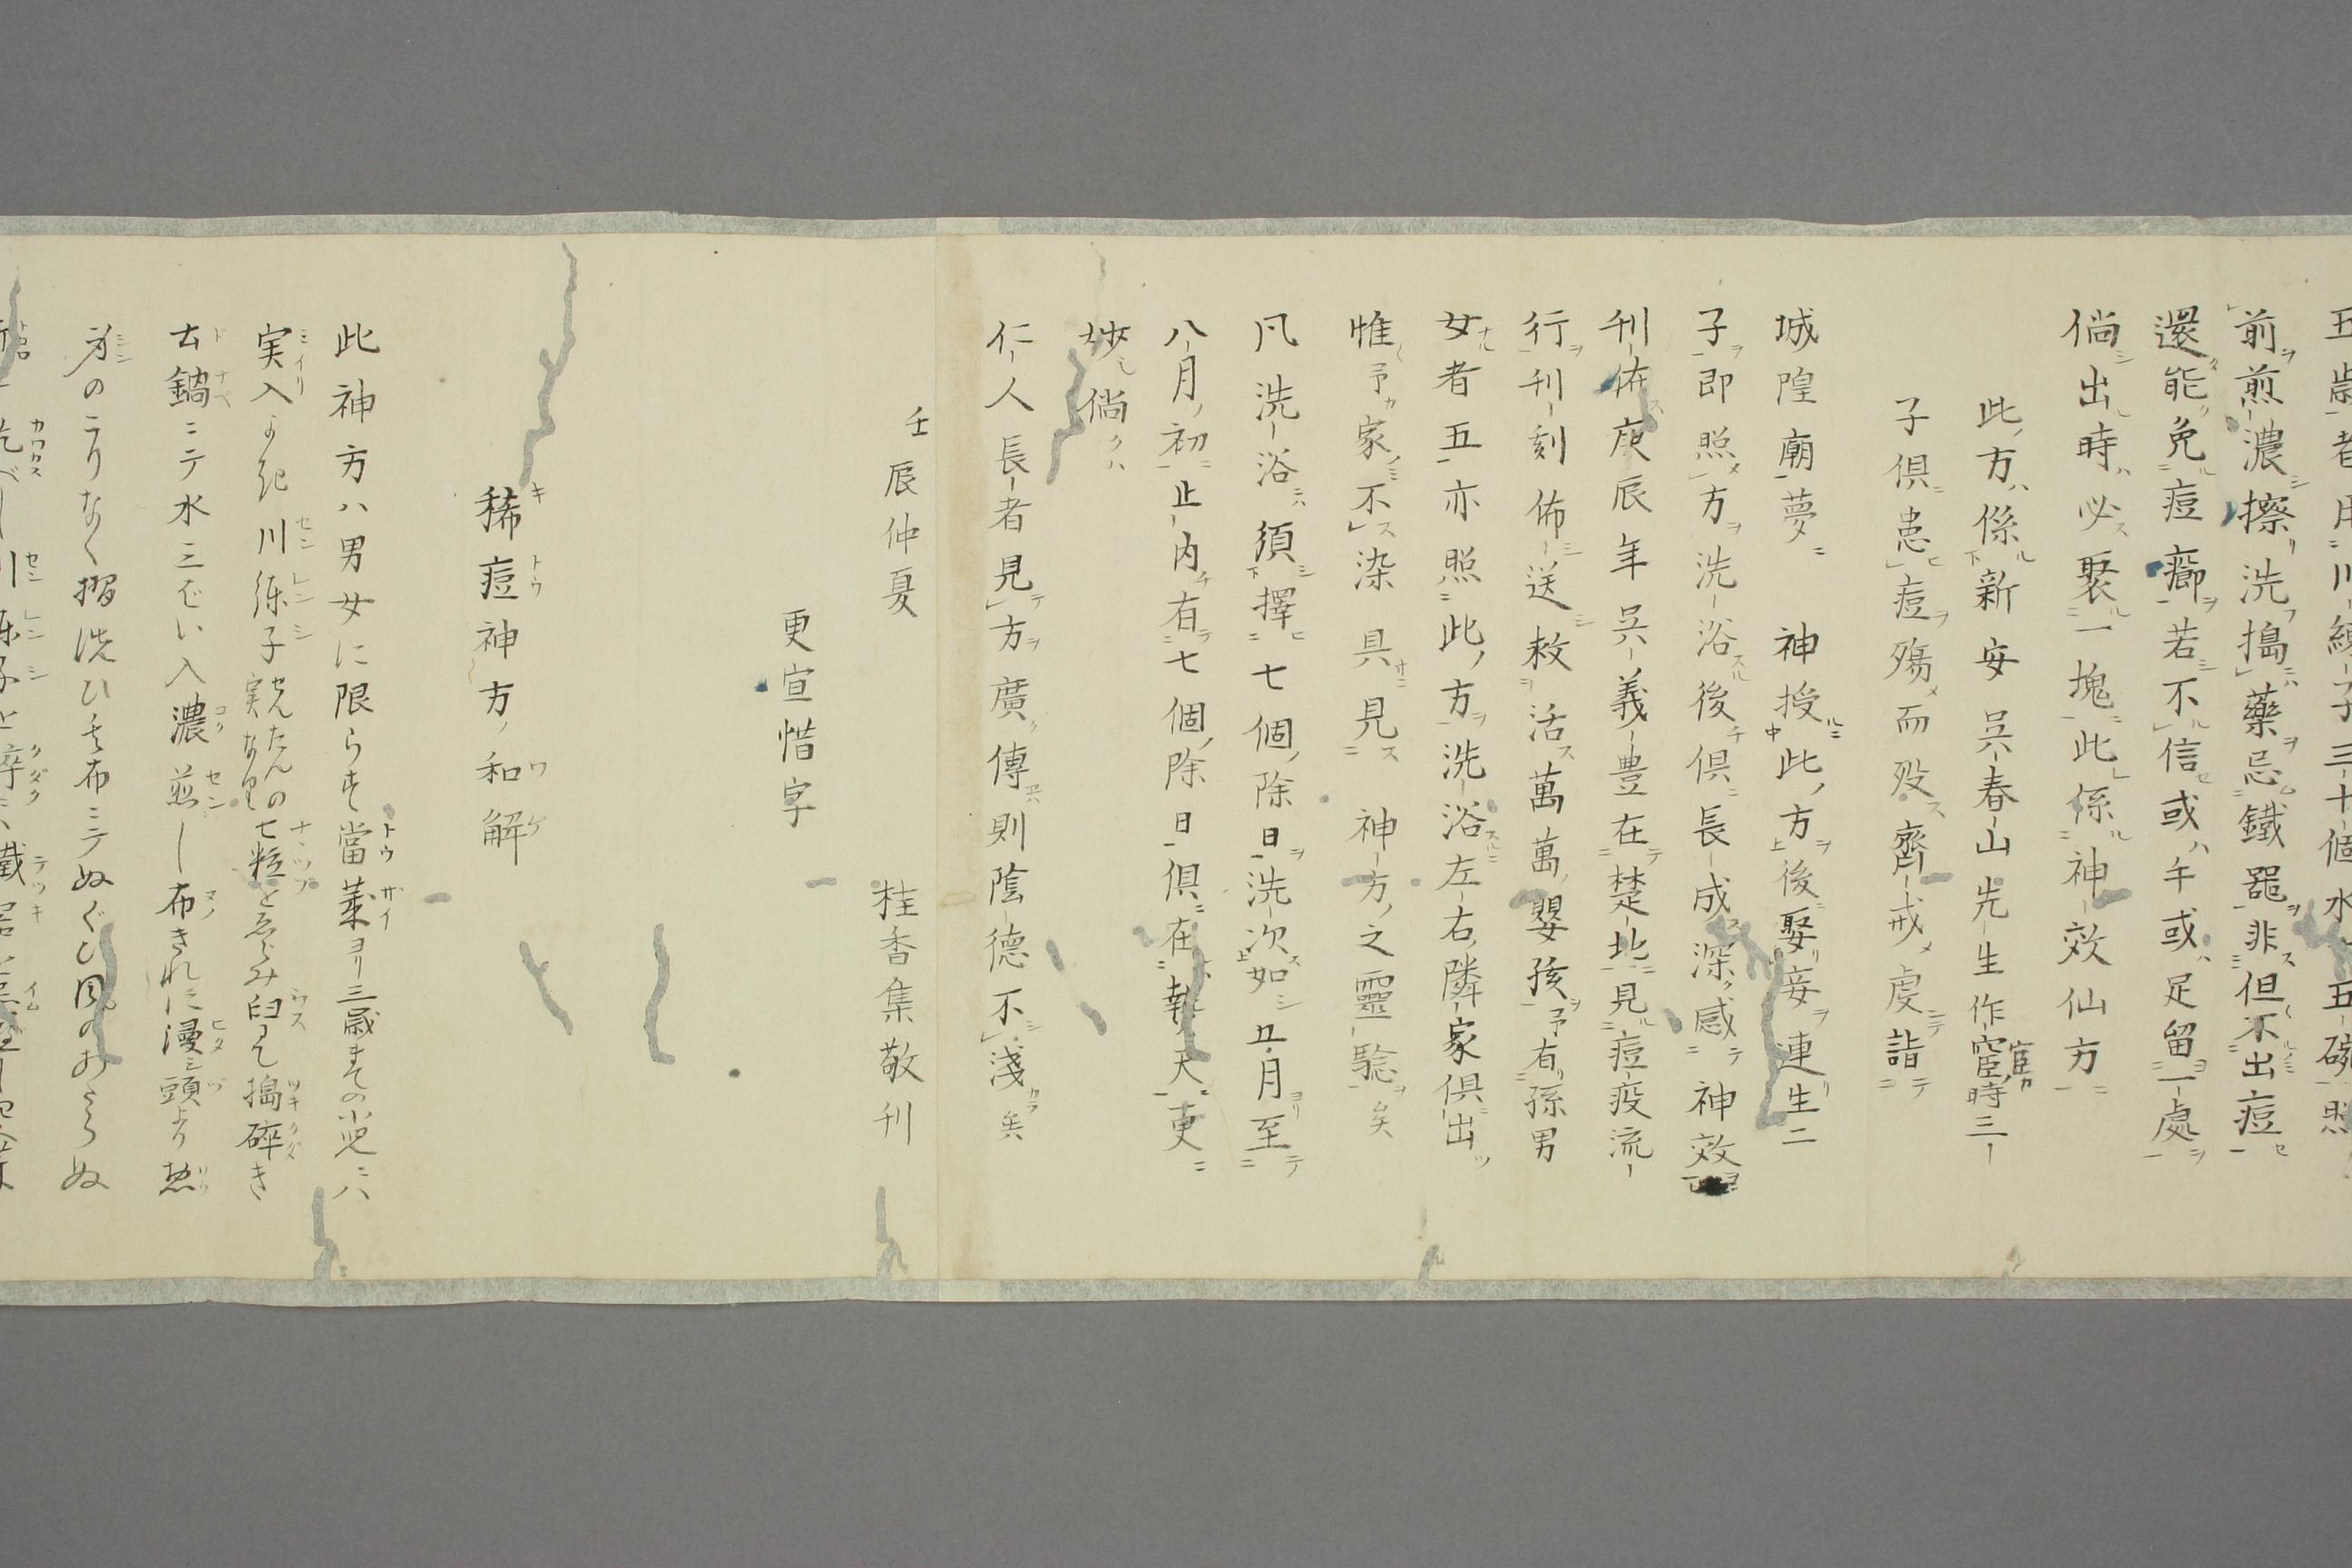 五歳者用川練子三十個水五碗照
前煎濃擦洗搗藥忌鐵器非但不出痘
還能免痘癤若不信或午或足留一處
倘出時必聚一塊此係神效仙方
此方係新安吳春山先生作宦時三
子俱患痘殤而歿齊戒虔詣
城隍廟夢 神授此方後娶妾連生二
子即照方洗浴後俱長成深感神效
刊佈庚辰年吳義豊在楚北見痘疫流
行刊刻佈送救活萬萬嬰孩予有孫男
女者五亦照此方洗浴左右隣家俱出
惟予家不染具見 神方之靈驗矣
凡洗浴須擇七個除日洗次如五月至
八月初止內有七個除日俱在熱天更
妙倘
仁人長者見方廣傳則陰德不淺矣
壬辰仲夏 桂香集敬刊
更宣惜字
稀痘神方和解
此神方ハ男女に限らす當歳ヨリ三歳までの小児ニハ
実入よき川練子せんたんの実なり七粒をゑらみ臼にて搗碎き
土鍋ニテ水三ばい入濃煎し布きれに漫シ頭より惣
身のこりなく摺洗ひ其布ニテぬぐひ風のあたらぬ